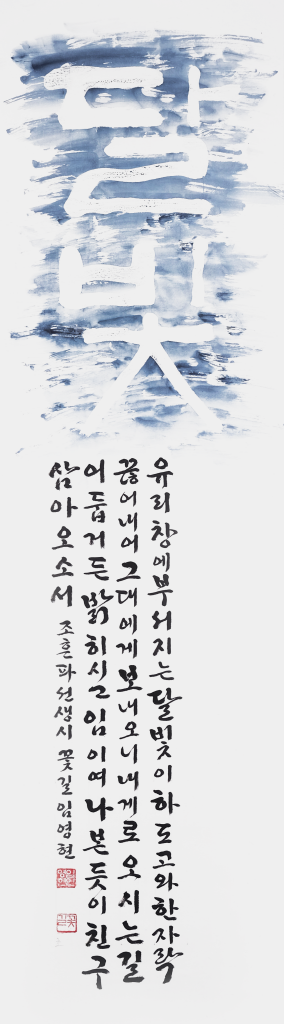 달
빛
유리창에부서지는달빛이하도고와한자락
끊어내어그대에게보내오니내게로오시는길
어둡거든밝히시고임이여나본듯이친구
삼아오소서 조흔파선생시 꽃길임영현